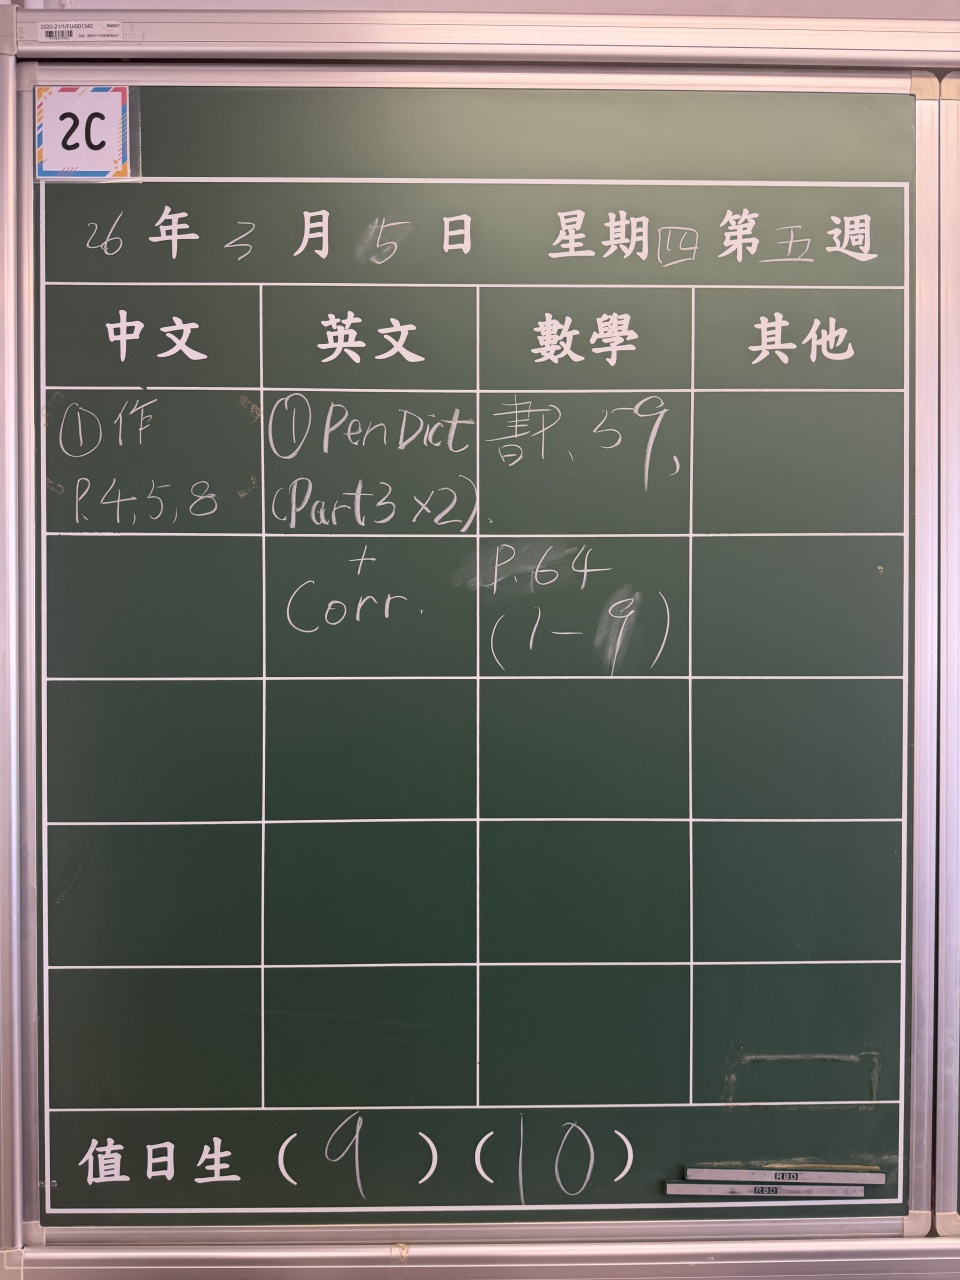 2020-21/1/FU/001342
2C
26年3月5日 星期四第五週
中文 英文 數學 其他
①作
P.4,5,8
①Pen Dict
(Part3 x2)
+
Corr.
書P.59,
P.64
(1-9)
值日生(9)(10)
RBD
RBD